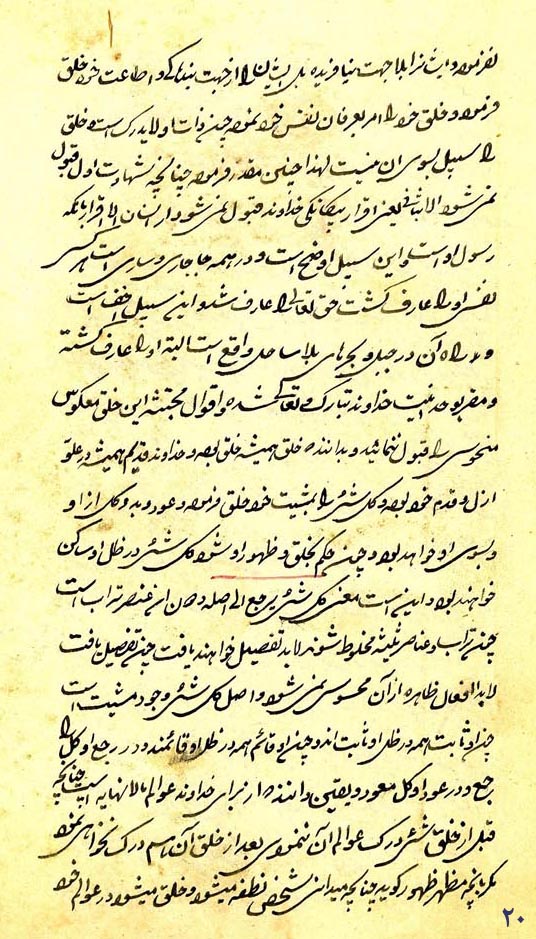 نفرموده و ایشانرا بلا جهت نیافریده بل ایشان را از جهت بندگی و اطاعت خود خلق
فرموده و خلق خود را امر بعرفان نفس خود نموده چون ذات او لا یدرک است و خلق
را سبیل بسوی آن نیست لهذا چنین مقدر فرموده چنانچه شهادت اول قبول
نمی شود الا بثانی یعنی اقرار بیگانگی خداوند قبول نمی شود از انسان الا اقرار بآنکه
رسول اوست و این سبیل اوضح است و در همه جا جاری و ساری است هر کسی
نفس او را عارف گشت حق تعالی را عارف شده و این سبیل اخفّ است
و راه آن در جبل و بحرهای بلا ساحل واقع است البته او را عارف گشته
و مقر بوحدانیت خداوند تبارک و تعالی شده و اقوال مجتثه این خلق معکوس
منحوس را قبول ننمائید و بدانند که خلق همیشه خلق بوده و خداوند قدیم همیشه در علو
ازل و قدم خود بوده و کل شئ را بمشیت خود خلق فرموده و عود و بدو کل از او
و بسوی او خواهد بود و چون حکم بخلق و ظهور او شود کل شئ در ظل او ساکن
خواهند بود و این است معنی کل شئ یرجع الی اصله و آن این عنصر تراب است
چون تراب و عناصر ثلثه مخلوط شوند لابد تفصیل خواهند یافت چون تفصیل یافت
لابد افعال ظاهره از آن محسوس نمی شود و اصل کل شئ وجود مشیت است
چون او ثابت همه در ظل او ثابت اند و چون او قائم همه در ظل او قائمند و در رجع او کل را
رجع و در عود او کل معود و یقین دانند که از برای خداوند عوالم بالا نهایه است چنانچه
قبل از خلق شئ درک عوالم آن ننمودی بعد از خلق آن هم درک نخواهی نمود
مگر بآنچه مظهر ظهور گوید چنانچه میدانی شخص نطفه میشود و خلق میشود در عوالم خود
۲۰